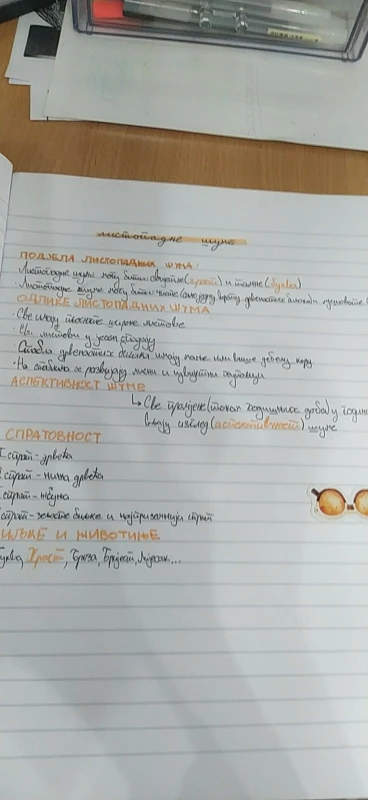 листопадне шуме
ПОДЈЕЛА ЛИСТОПАДНИХ ШУМА:
· Листопадне шуме могу бити свијетле (храст) и тамне (буква)
· Листопадне шуме могу бити чисте (само једну врсту дрвенастих биљака) и мјешовите (
ОДЛИКЕ ЛИСТОПАДНИХ ШУМА
· Све имају пљоснате широке листове
· Ти листови у јесен опадају
· Стабла дрвенастих биљака имају мање или више дебелу кору
· На стаблима се развијају лисни и цвјетни пупољци
АСПЕКТИВНОСТ ШУМЕ
↳ Све промјене (током годишњих доба) у
изглед (аспективност) шуме
СПРАТОВНОСТ
I спрат - дрвећа
спрат - нижа дрвећа
спрат - жбуна
спрат - зељасте биљке и најприземнији спрат
ИЉКЕ И ЖИВОТИЊЕ
буква, Храст, Бреза, Бријест, Љесак,...